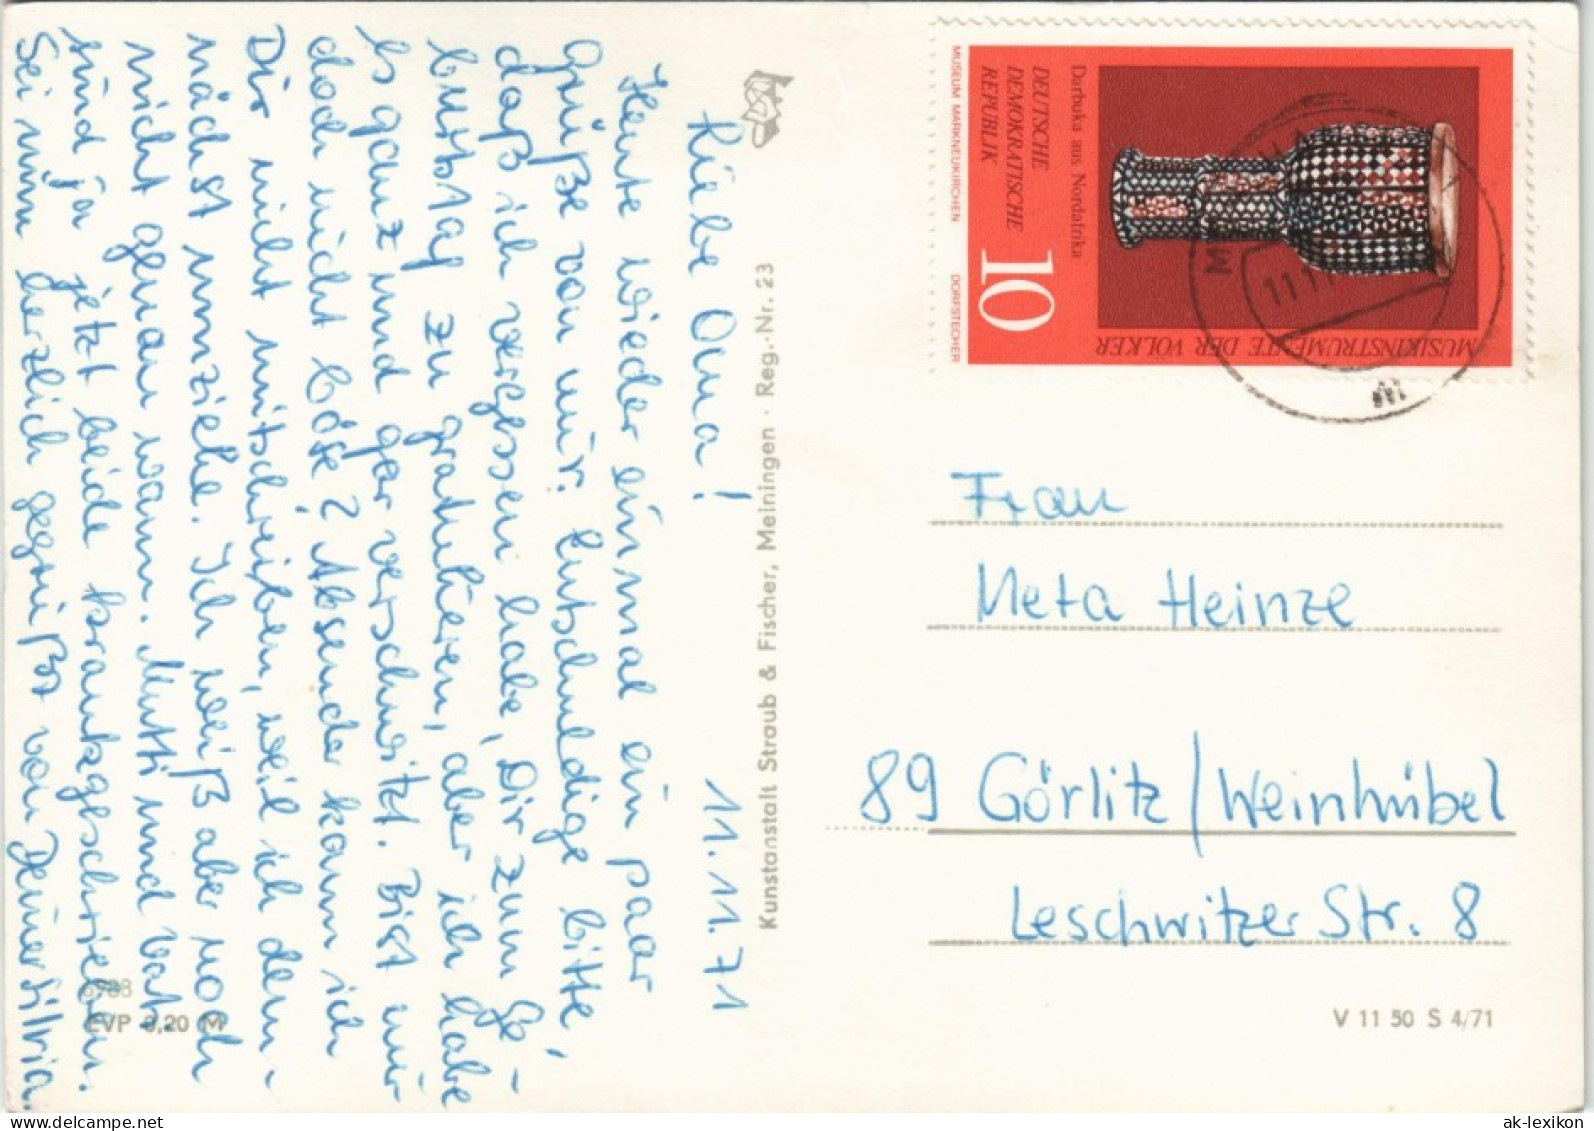 11.11.71
Liebe Oma!
Heute wieder einmal ein paar
Grüße von mir. Entschuldige bitte,
daß ich vergessen habe, Dir zum Ge-
burtstag zu gratulieren, aber ich habe
es ganz und gar verschwitzt. Bist mir
doch nicht böse? Absender kann ich
Dir nicht mitschreiben, weil ich dem-
nächst umziehe. Ich weiß aber noch
nicht genau wann. Mutti und Vati
sind ja jetzt beide krankgeschrieben.
Sei nun herzlich gegrüßt von Deiner Silvia.
6988
EVP 0,20 M
Kunstanstalt Straub & Fischer, Meiningen · Reg.-Nr. 23
MUSEUM MARKNEUKIRCHEN
DORFSTECHER
DEUTSCHE
DEMOKRATISCHE
REPUBLIK
10
Darbuka aus Nordafrika
MUSIKINSTRUMENTE DER VÖLKER
Frau
Meta Heinze
89 Görlitz/Weinhübel
Leschwitzer Str. 8
V 11 50 S 4/71
ak-lexikon.com